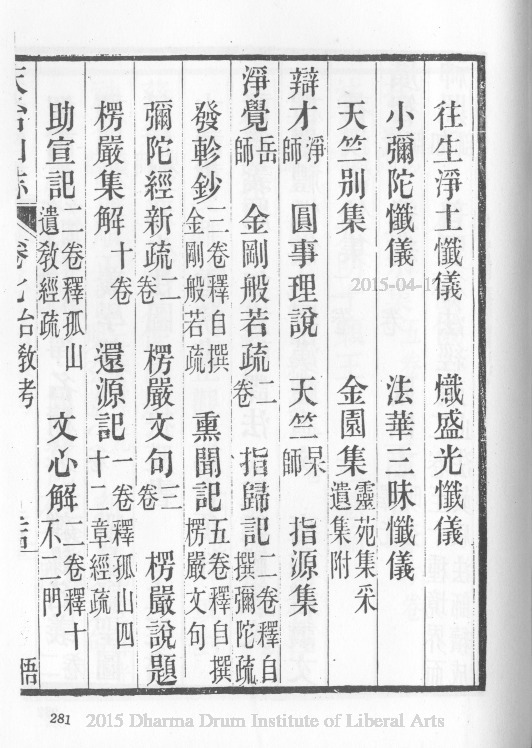 往生淨土懺儀　熾盛光懺儀
小彌陀懺儀　法華三昧懺儀
天竺別集　金園集靈苑集采遺集附
辯才淨師　圓事理說　天竺杲師　指源集
淨覺岳師　金剛般若疏二卷　指歸記二卷釋自撰彌陀疏
發軫鈔三卷釋自撰金剛般若疏　熏聞記五卷釋自撰楞嚴文句
彌陀經新疏二卷　楞嚴文句三卷　楞嚴說題
楞嚴集解十卷　還源記一卷釋孤山四十二章經疏
助宣記二卷釋孤山遺敎經疏　文心解二卷釋十不二門
天台山志　卷　台敎考　悟
2015-04-17
281
2015 Dharma Drum Institute of Liberal Arts